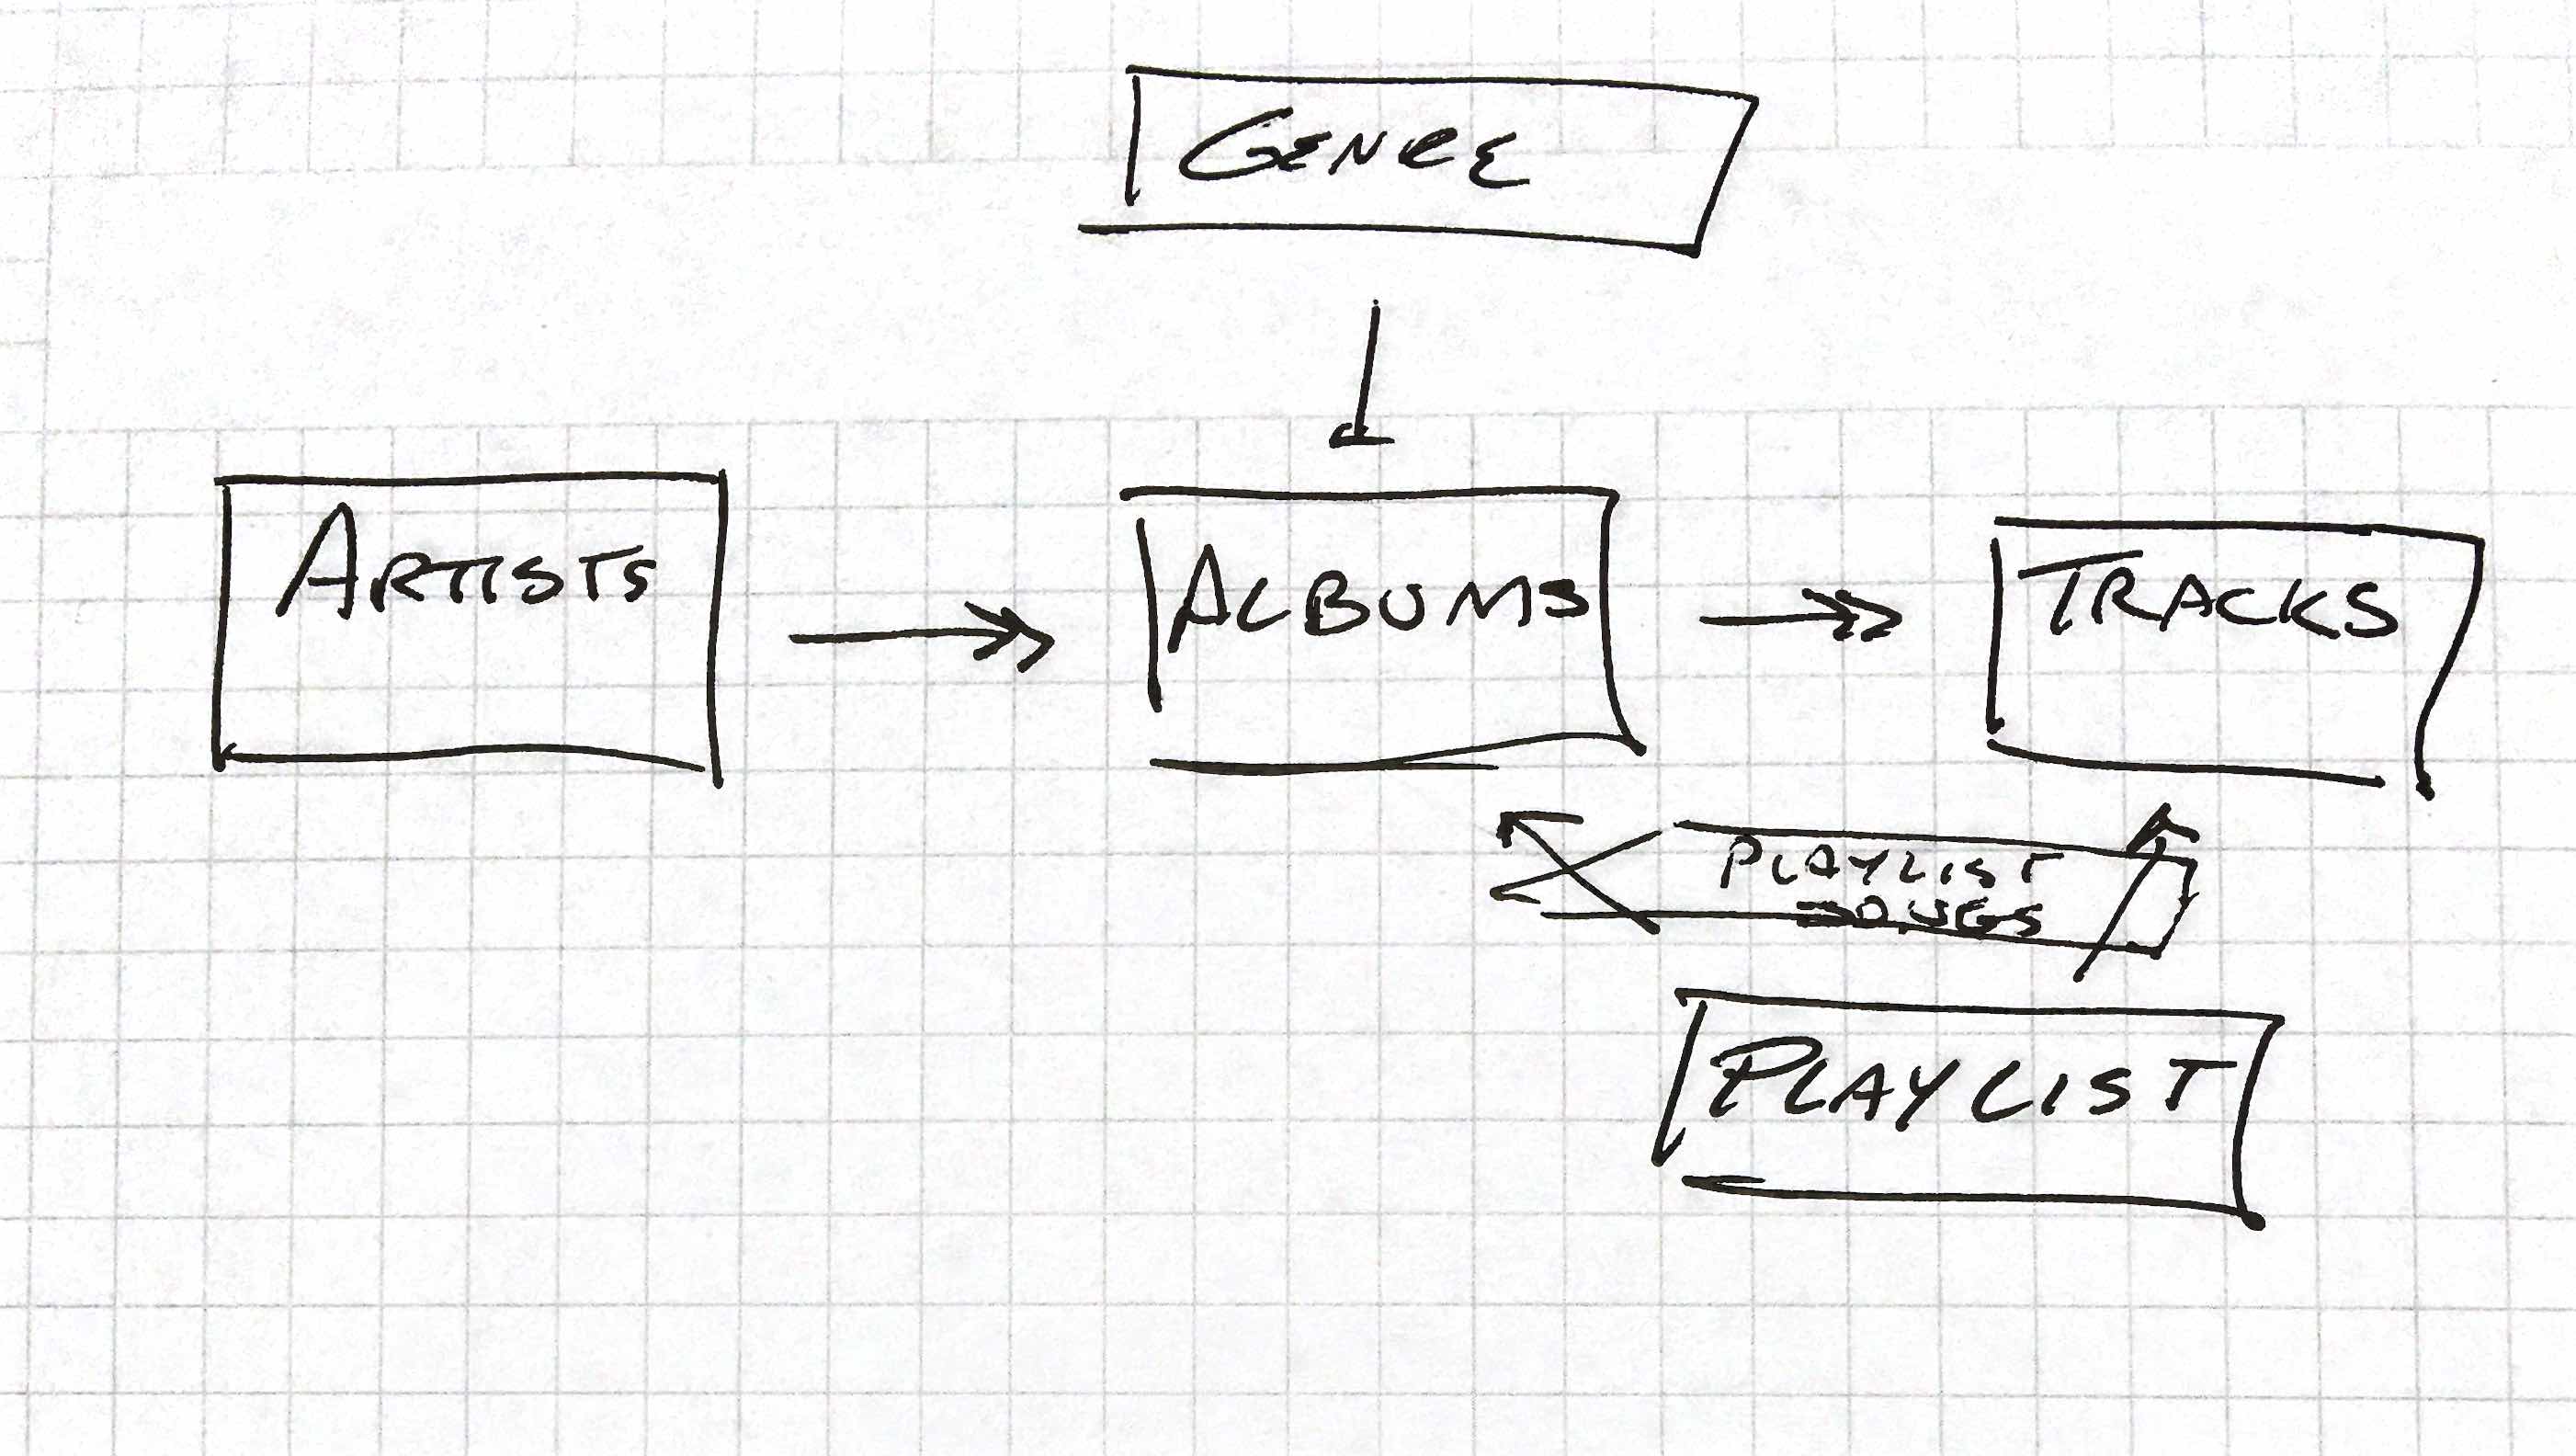 GENRE
ARTISTS
ALBUMS
TRACKS
PLAYLIST
SONGS
PLAYLIST